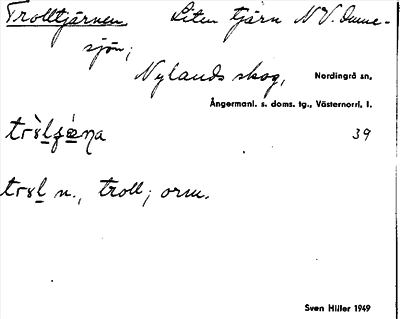 Trolltjärnen Liten tjärn N.V. Omne-
sjön;
Nylands skog, Nordingrå sn,
Ångermanl. s. doms. tg., Västernorrl. l.
39
n., troll; orm.
Sven Hiller 1949